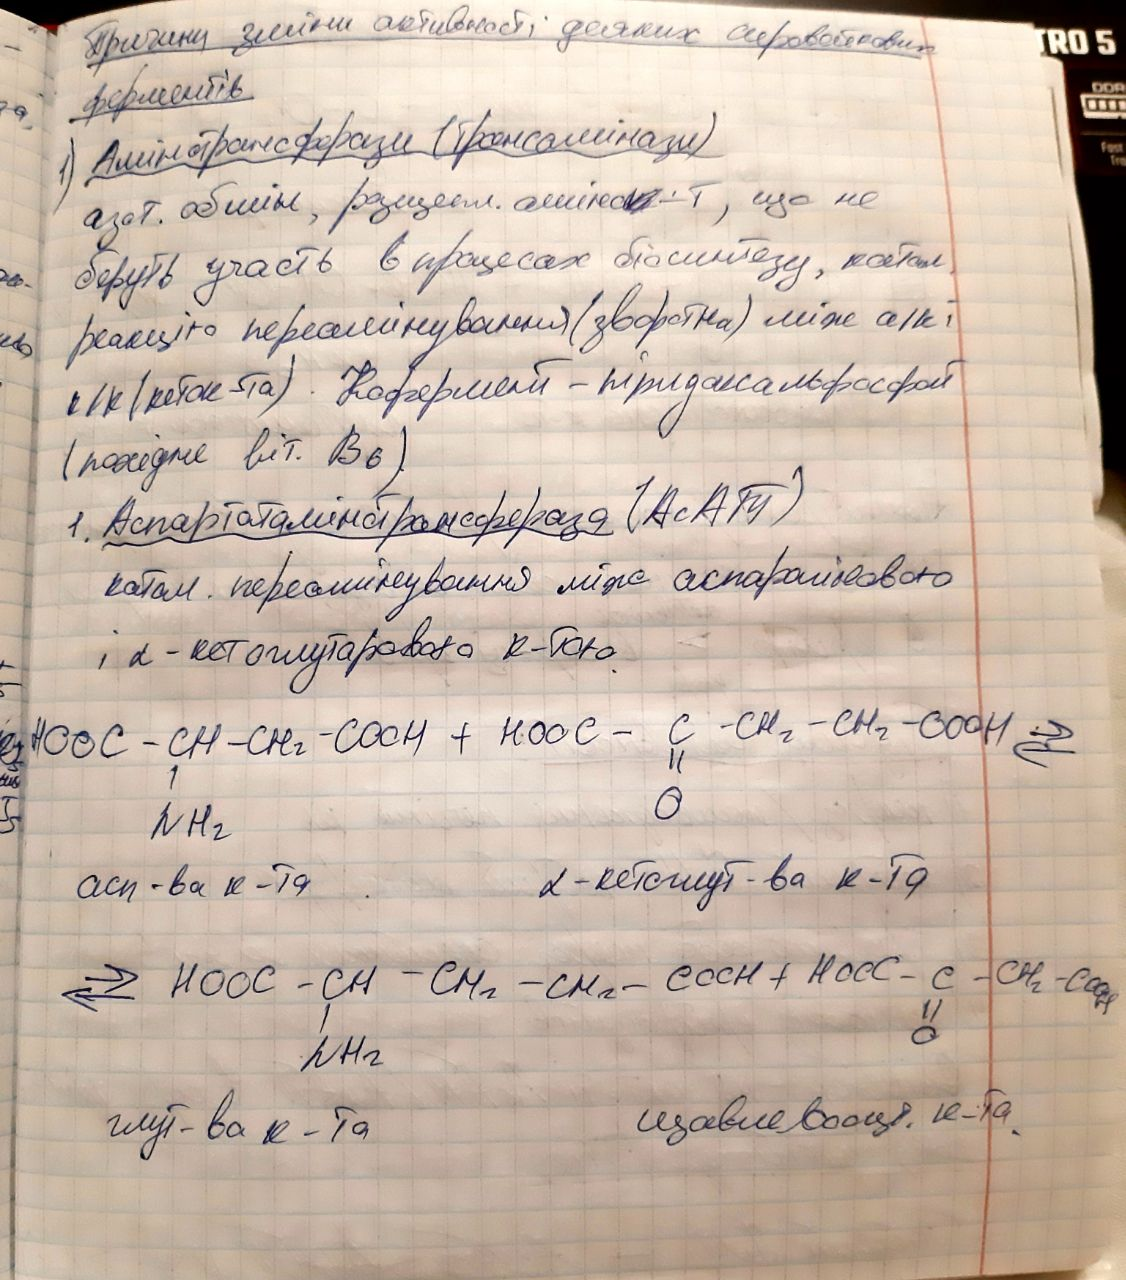 Причини зміни активності деяких сироваткових
ферментів
TRO 5
DDR
1) Амінотрансферази (трансамінази)
азот. обмін, розщепл. амінок-т, що не
беруть участь в процесах біосинтезу, катал.
реакцію переамінування (зворотна) між а/к і
к/к (кеток-та). Кофермент – піридоксальфосфат
(похідне віт. В6)
1. Аспартатамінотрансфераза (АсАТ)
катал. переамінування між аспарагіновою
і α-кетоглутаровою к-тою.
HOOC – CH – CH2 – COOH + HOOC – C – CH2 – CH2 – COOH ⇌
NH2
O
асп-ва к-та α-кетоглут-ва к-та
⇌ HOOC – CH – CH2 – CH2 – COOH + HOOC – C – CH2 – COOH
NH2
O
глут-ва к-та щавлевооцт. к-та.